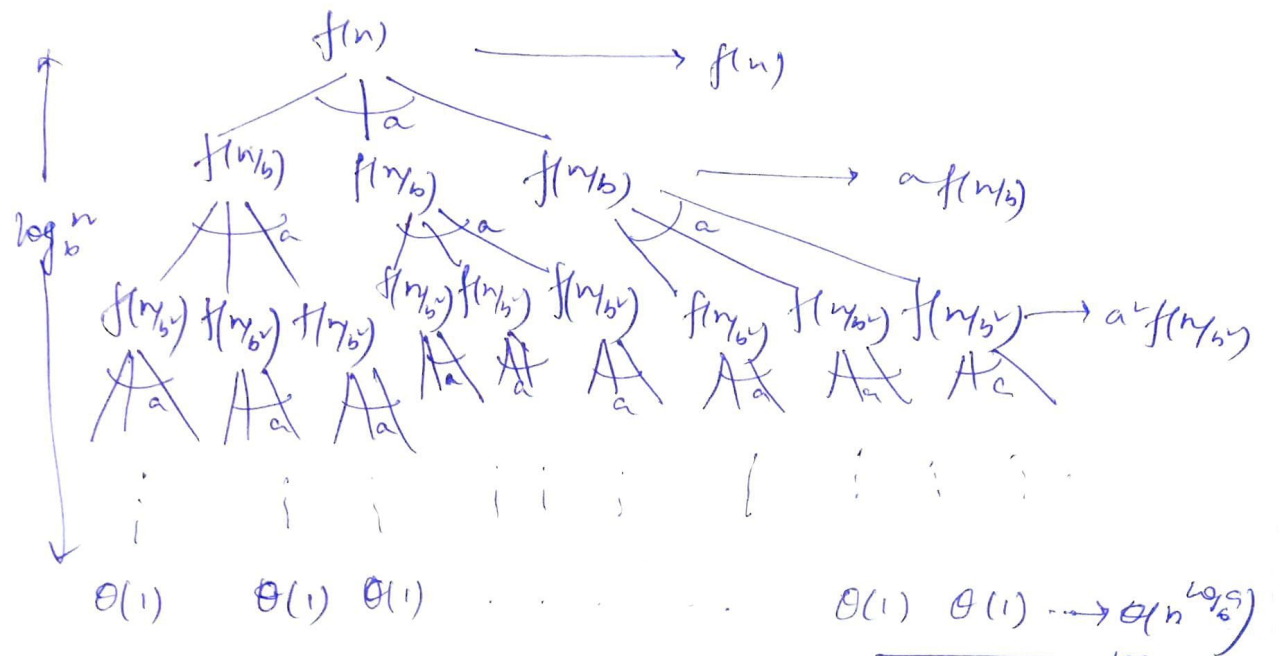 f(n) → f(n)
a
f(n/b) f(n/b) f(n/b) → a f(n/b)
log_b^n
a a a
f(n/b²) f(n/b²) f(n/b²) f(n/b²) f(n/b²) f(n/b²) f(n/b²) f(n/b²) f(n/b²) → a² f(n/b²)
a a a a a a a a a
θ(1) θ(1) θ(1) . . . . . θ(1) θ(1) ...→ θ(n^{log_b a})